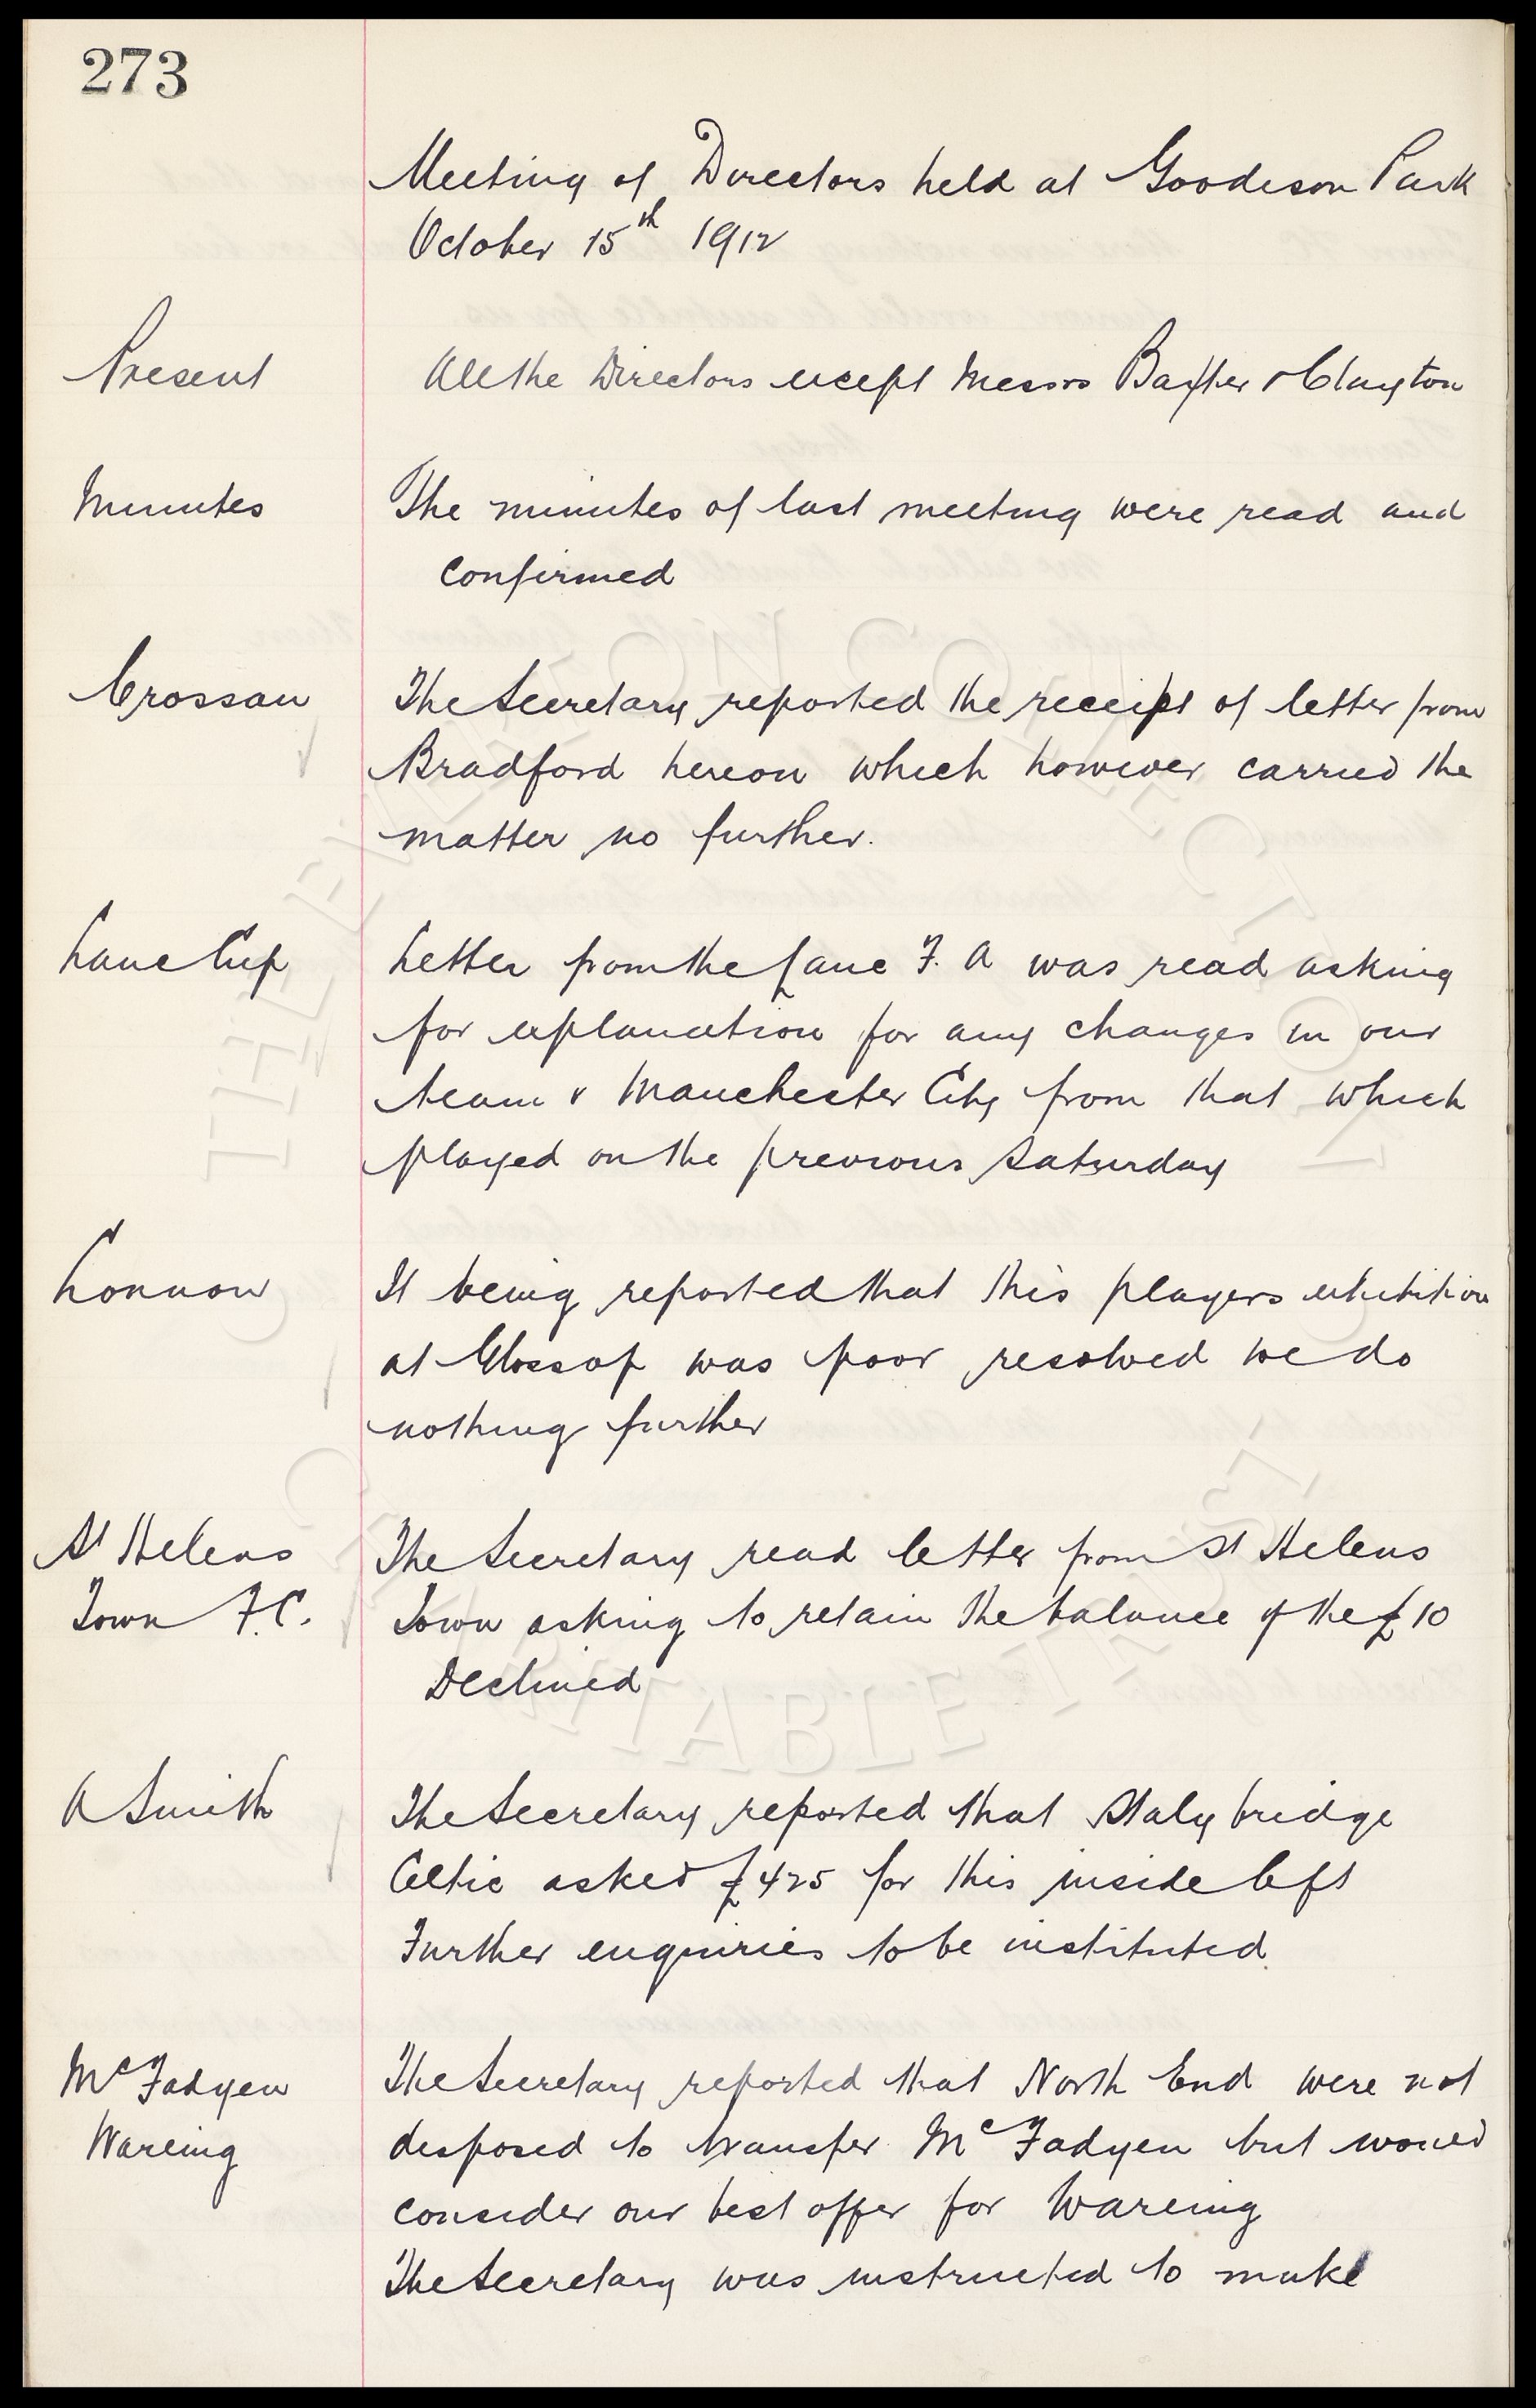 273
Meeting of Directors held at Goodison Park
October 15th 1912
Present
All the Directors except Messrs Baxter & Clayton
Minutes
The minutes of last meeting were read and
confirmed
Crossan
The Secretary reported the receipt of letter from
Bradford hereon which however carried the
matter no further.
Lanc Cup
Letter from the Lanc F. A was read asking
for explanation for any changes in our
team v Manchester City from that which
played on the previous Saturday
Lonnon
It being reported that this players exhibition
at Glossop was poor resolved we do
nothing further
St Helens
Town F.C.
The Secretary read letter from St Helens
Town asking to retain the balance of the £10
Declined
A Smith
The Secretary reported that Stalybridge
Celtic asked £425 for this inside left
Further enquiries to be instituted.
McFadyen
Wareing
The Secretary reported that North End were not
disposed to transfer McFadyen but would
consider our best offer for Wareing
The Secretary was instructed to make